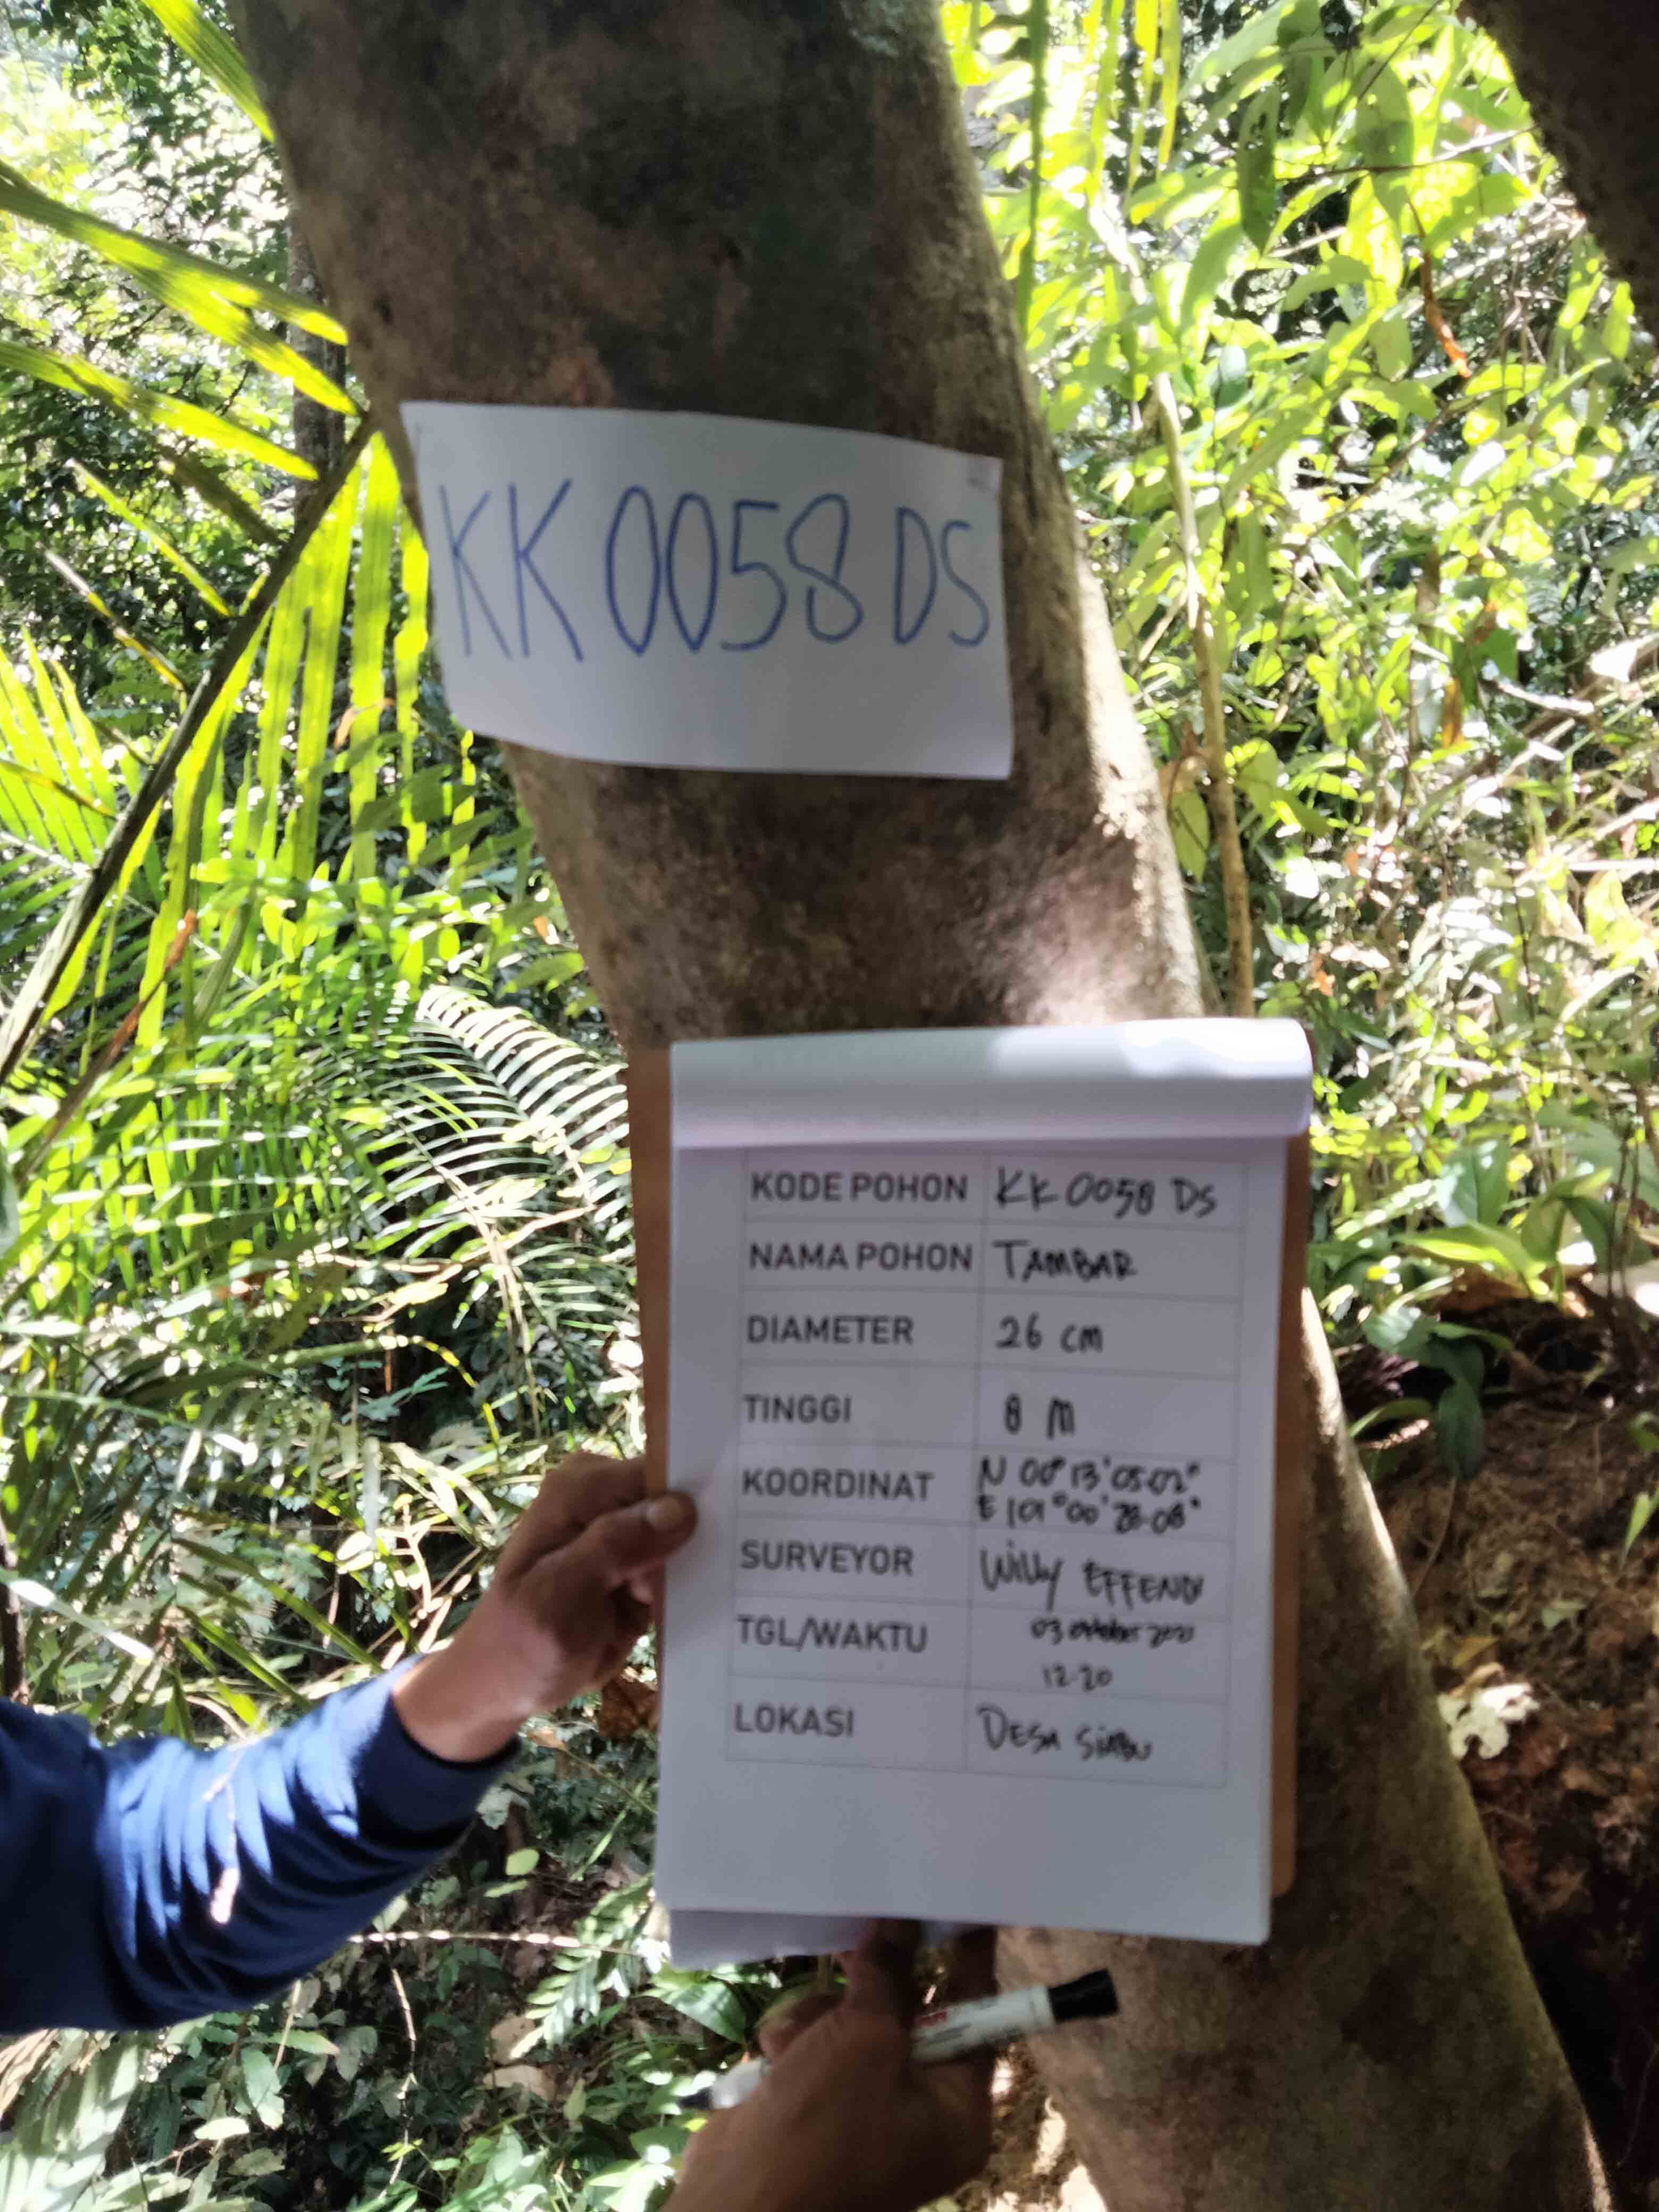 KK 0058 DS
KODE POHON KK 0058 DS
NAMA POHON TAMBAR
DIAMETER 26 cm
TINGGI 8 M
KOORDINAT N 00° 13' 05.02"
E 101° 00' 28.08"
SURVEYOR Willy EFFENDI
TGL/WAKTU 03 oktober
12.20
LOKASI DESA